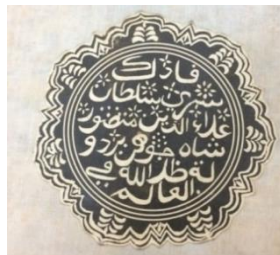 فادك
سري سلطان
علاء الدين منصور
شاه جوهن بردو
لة ظل الله في
العالم